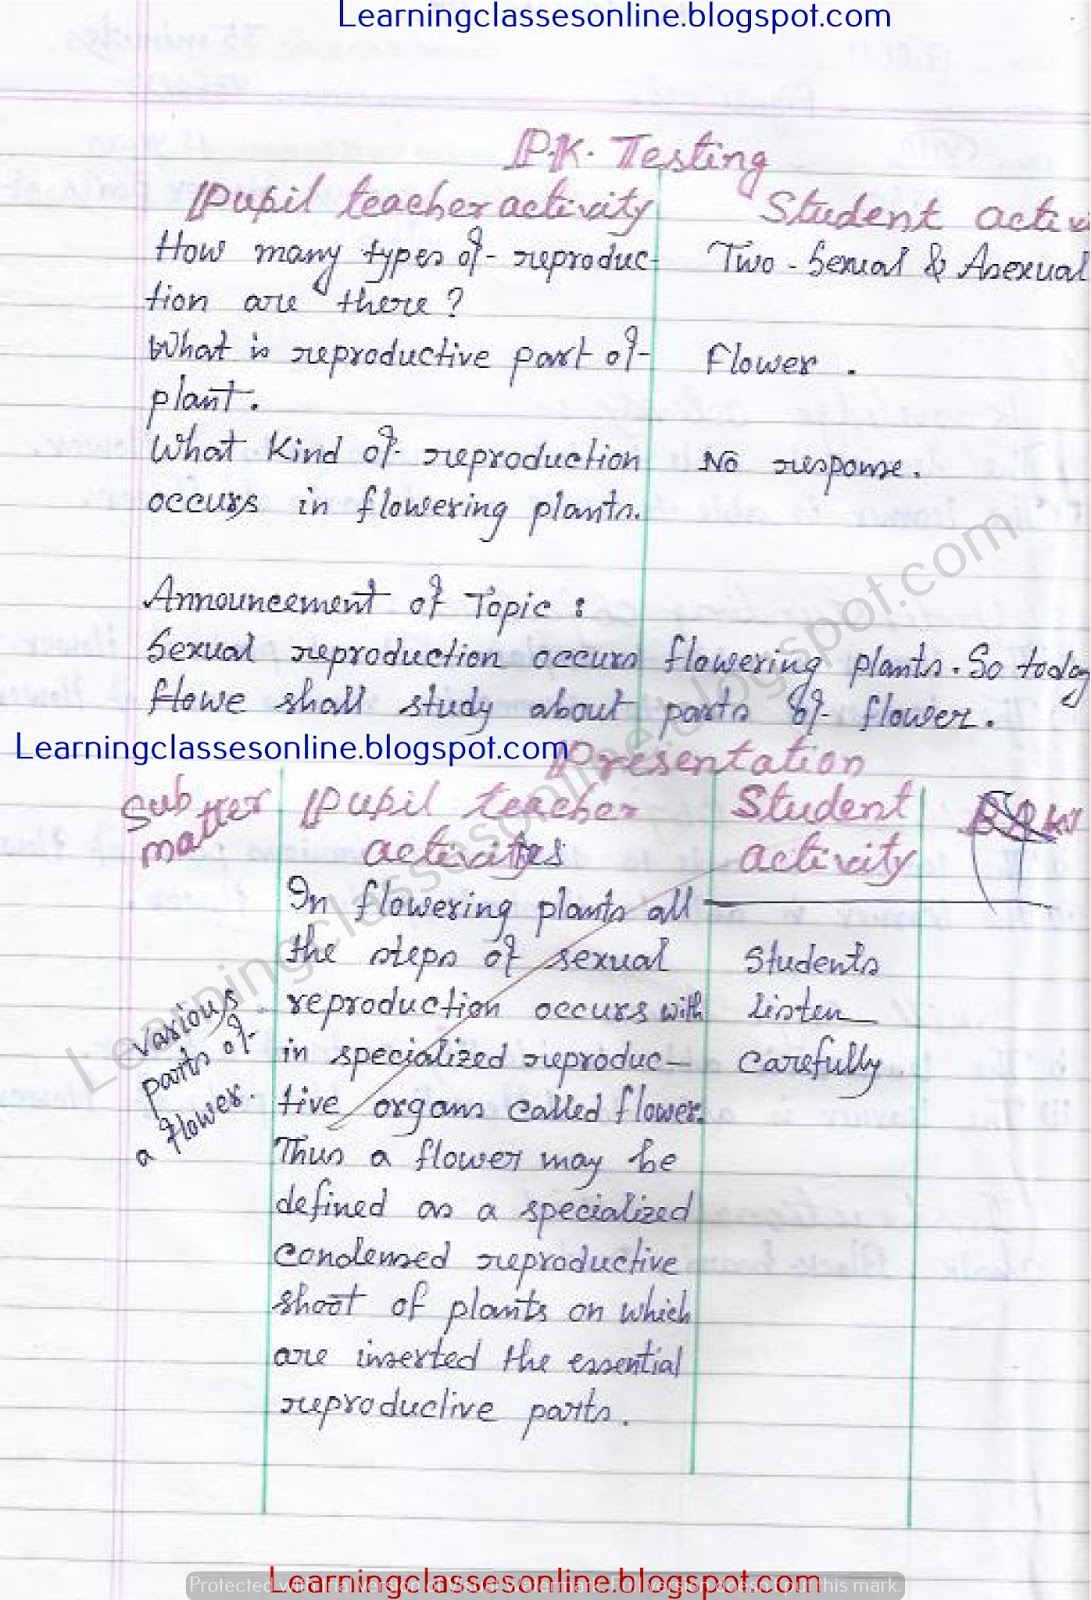 Learningclassesonline.blogspot.com
P.K. Testing
Pupil teacher activity
Student activ
How many types of reproduc-
tion are there?
Two - Sexual & Asexual
What is reproductive part of
plant.
Flower.
What kind of reproduction
occurs in flowering plants.
No response.
Announcement of Topic :
Sexual reproduction occurs flowering plants. So today
flowe shall study about parts of flower.
Learningclassesonline.blogspot.com
Presentation
Sub matter
matter
Pupil teacher
activities
Student
activity
Various
parts of
a flower.
In flowering plants all
the steps of sexual
reproduction occurs with
in specialized reproduc-
tive organs called flower.
Thus a flower may be
defined as a specialized
condensed reproductive
shoot of plants on which
are inserted the essential
reproductive parts.
Students
listen
carefully.
Learningclassesonline.blogspot.com
Learningclassesonline.blogspot.com
Protected with trial version of Visual Watermark. Full version doesn't put this mark.